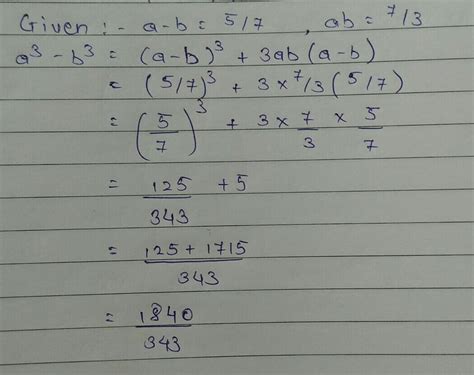 Given :- a-b = 5/7 , ab = 7/3
a³ - b³ = (a-b)³ + 3ab(a-b)
= (5/7)³ + 3×7/3(5/7)
= (5/7)³ + 3 × 7/3 × 5/7
= 125/343 + 5
= 125 + 1715/343
= 1840/343